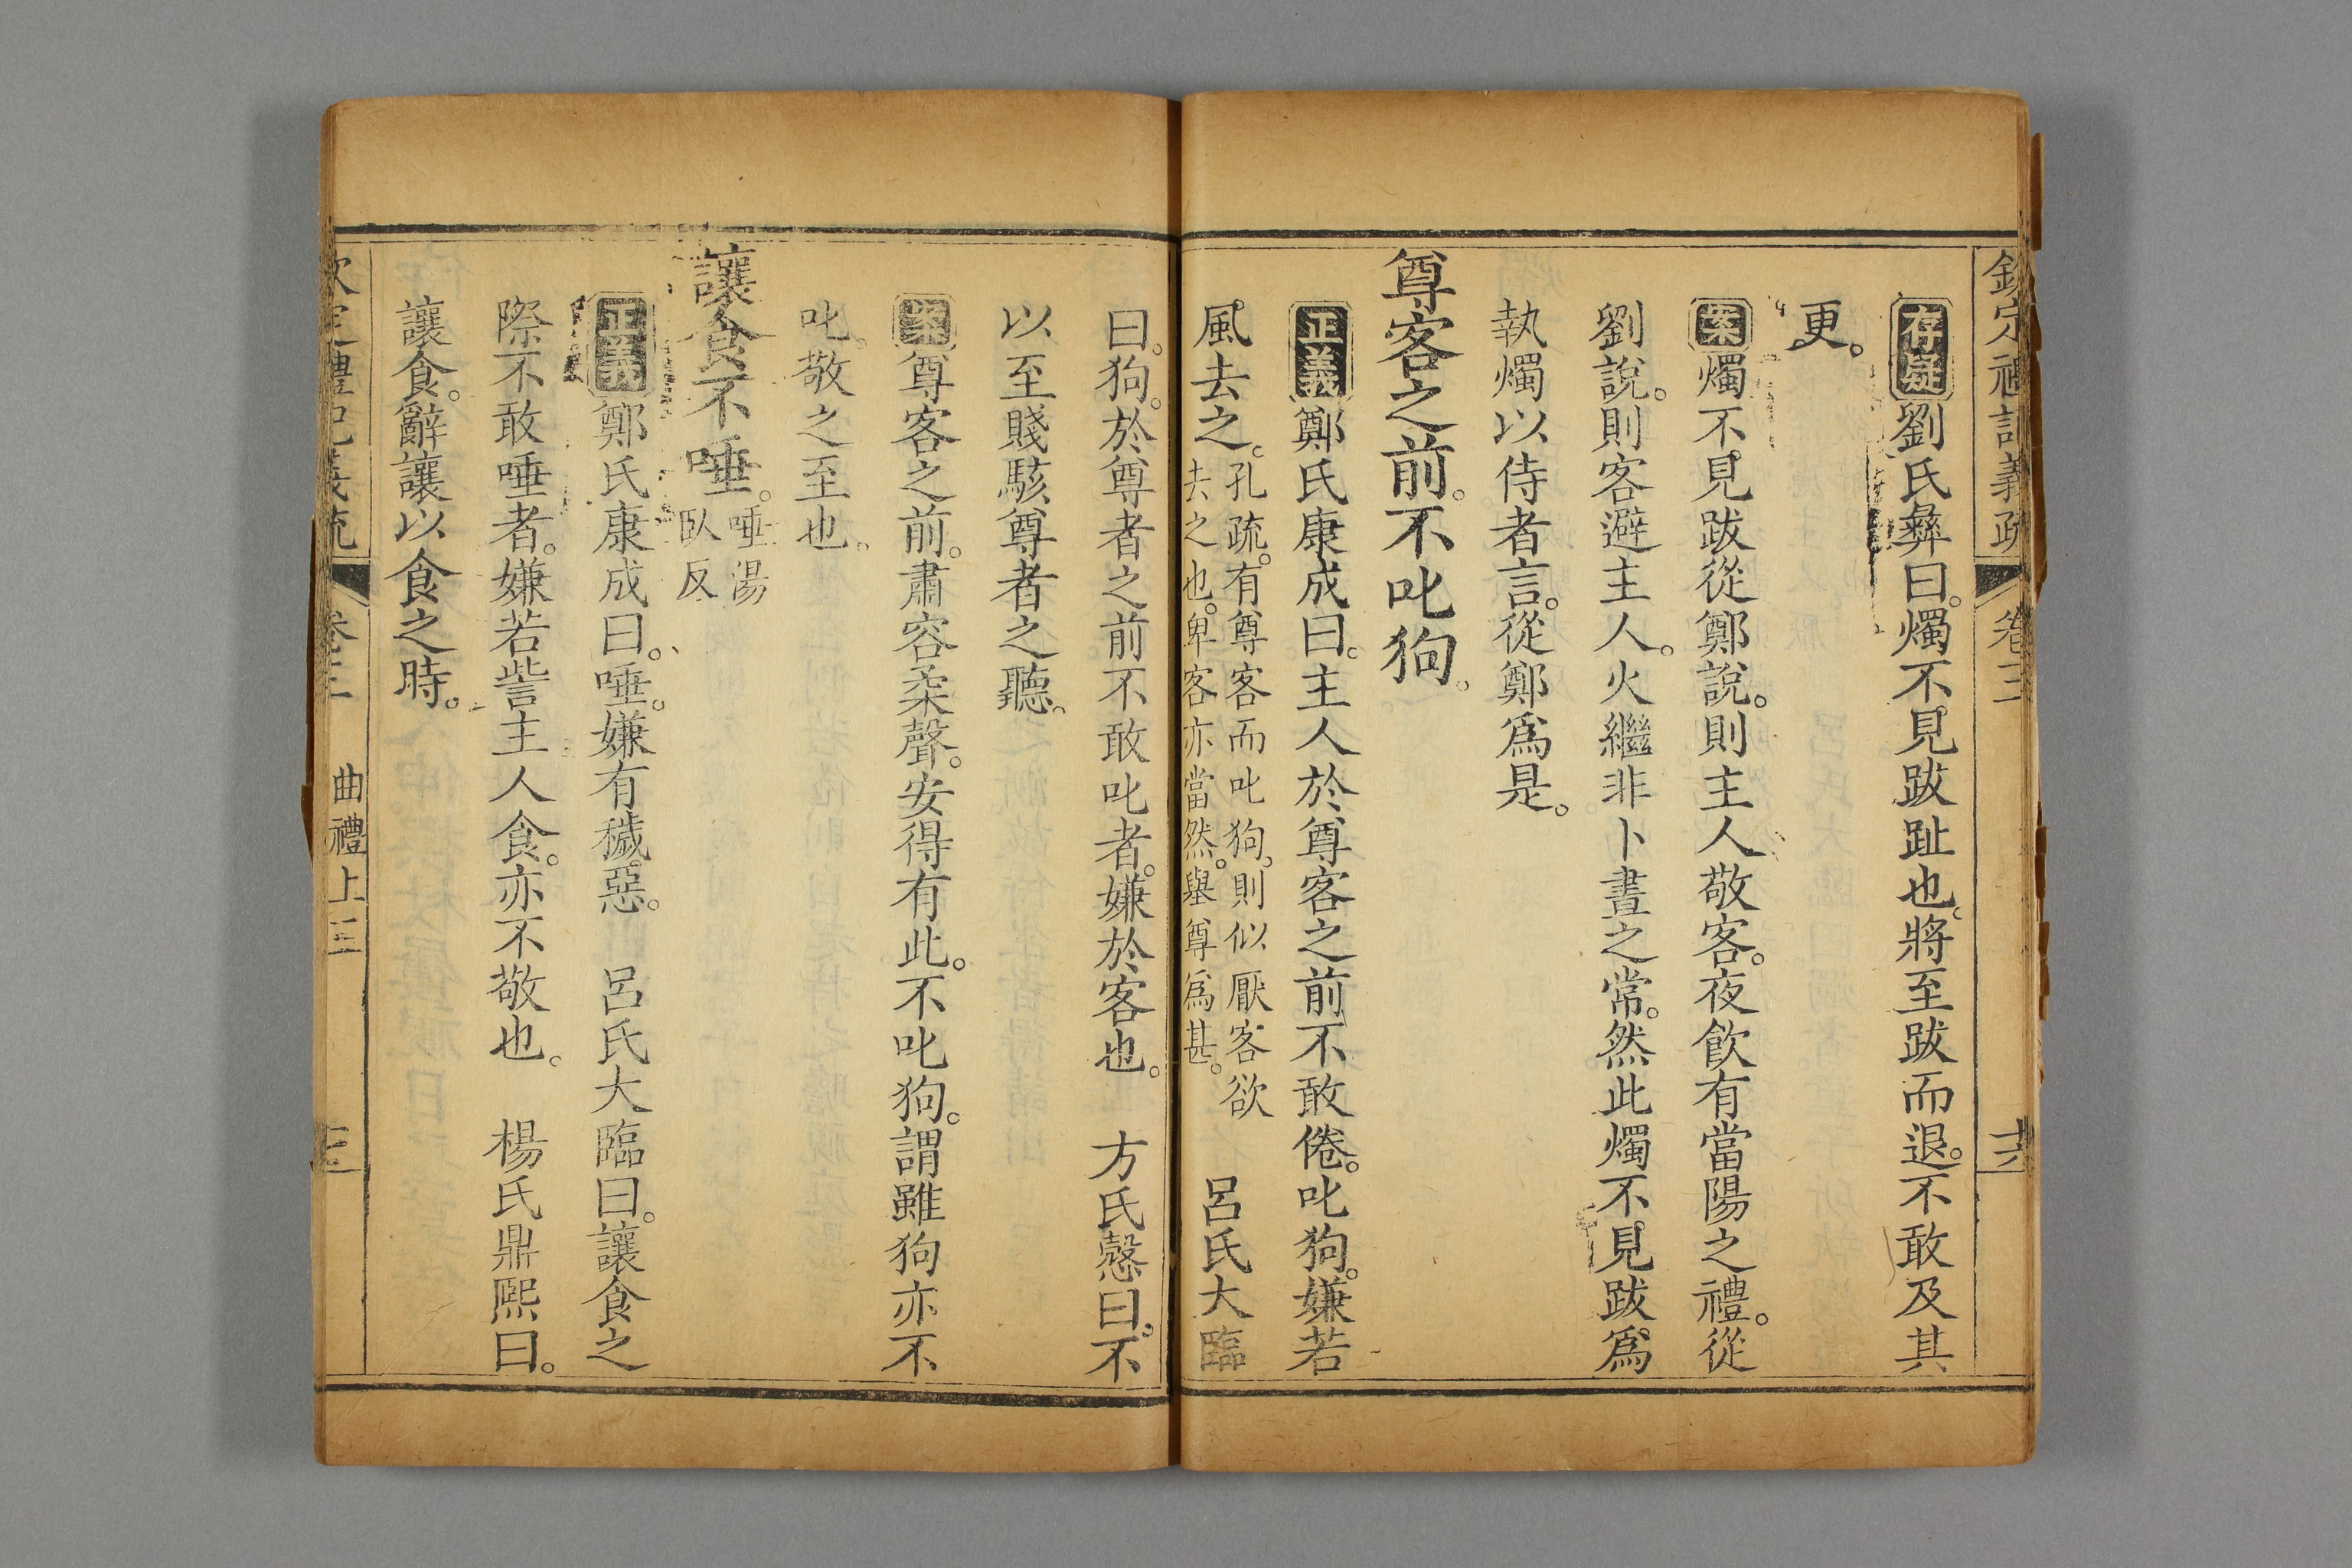 欽定禮記義疏 卷三 六
存疑劉氏彝曰。燭不見跋趾也。將至跋而退。不敢及其
更。
案燭不見跋從鄭說。則主人敬客。夜飲有當陽之禮。從
劉說。則客避主人。火繼非卜晝之常。然此燭不見跋爲
執燭以侍者言。從鄭爲是。
尊客之前。不叱狗。
正義鄭氏康成曰。主人於尊客之前不敢倦。叱狗。嫌若
風去之。孔疏。有尊客而叱狗。則似厭客欲
去之也。卑客亦當然。舉尊爲甚。
呂氏大臨
曰。狗。於尊者之前不敢叱者。嫌於客也。 方氏慤曰。不
以至賤駭尊者之聽。
案尊客之前。肅容柔聲。安得有此。不叱狗。謂雖狗亦不
叱。敬之至也。
讓食不唾。唾湯
臥反
正義鄭氏康成曰。唾。嫌有穢惡。 呂氏大臨曰。讓食之
際不敢唾者。嫌若訾主人食。亦不敬也。 楊氏鼎熙曰。
讓食。辭讓以食之時。
欽定禮記義疏 卷三 曲禮上三